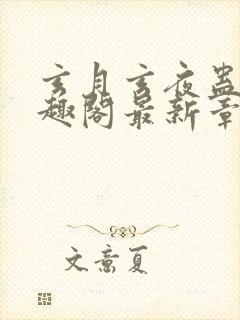 玄月玄夜蛊
趣阁最新章
文意夏